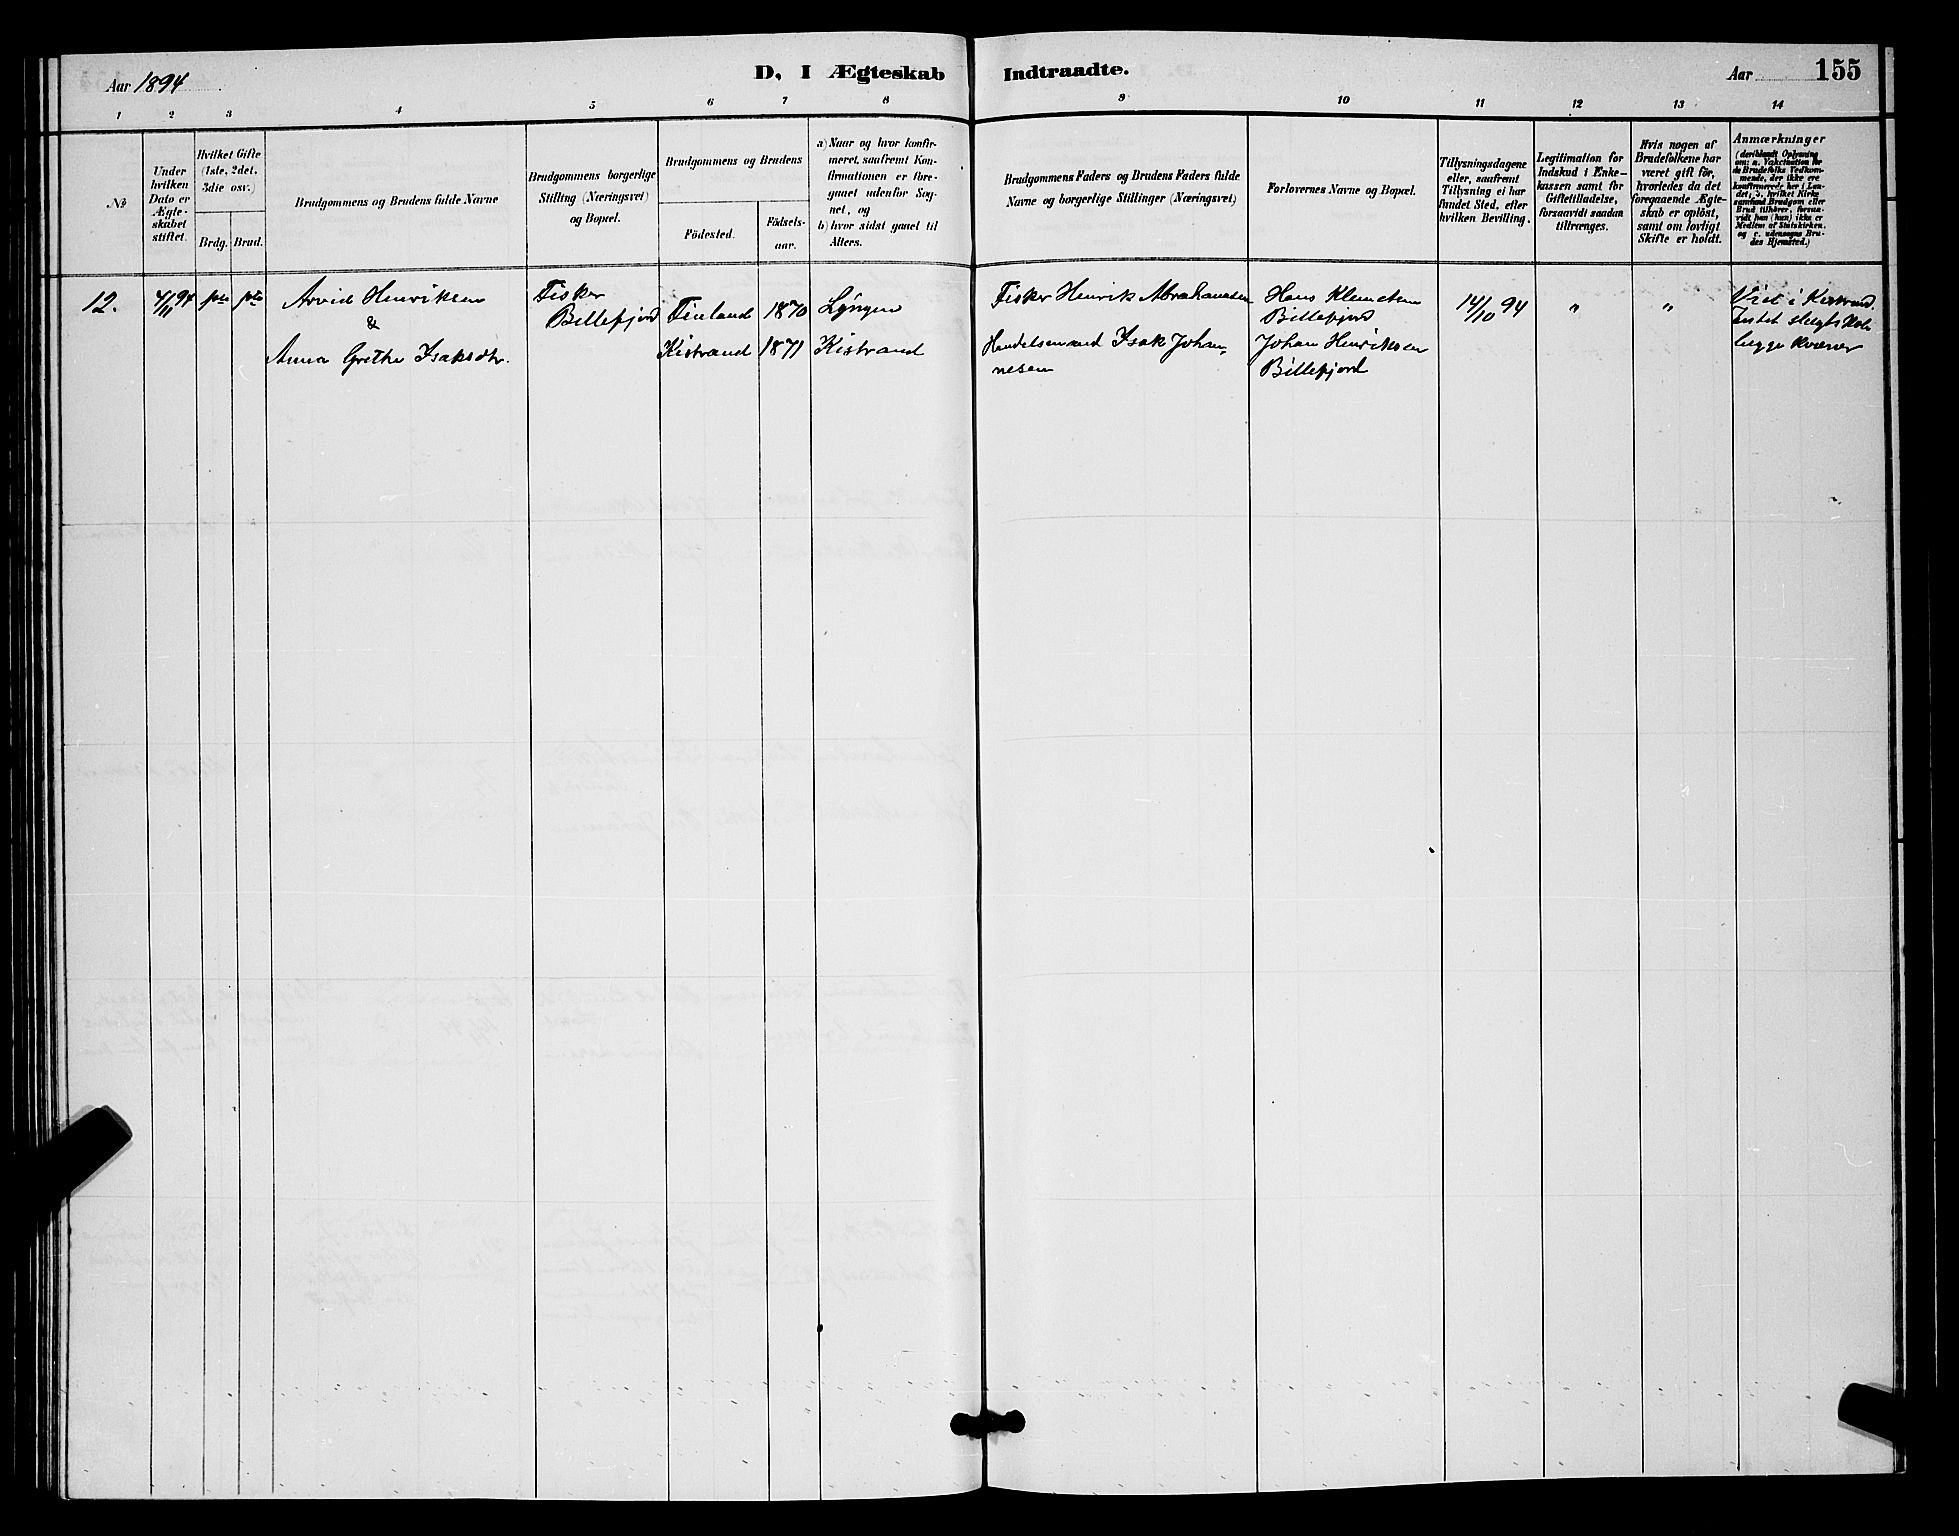 Aar 1894
D, I Ægteskab
Indtraadte.
Aar 155
1 2 3 4 5 6 7 8 9 10 11 12 13 14
No
Under
hvilken
Dato er
Ægte-
skabet
stiftet.
Hvilket Gifte
(1ste, 2det,
3die osv.)
Brdg. Brud.
Brudgommens og Brudens fulde Navne
Brudgommens borgerlige
Stilling (Næringsvei)
og Bopæl.
Brudgommens og Brudens
Födested.
Födsels-
aar.
a) Naar og hvor konfir-
meret, saafremt Kon-
firmationen er fore-
gaaet udenfor Sog-
net, og
b) hvor sidst gaaet til
Alters.
Brudgommens Faders og Brudens Faders fulde
Navne og borgerlige Stillinger (Næringsvei)
Forlovernes Navne og Bopæl.
Tillysningsdagene
eller, saafremt
Tillysning ei har
fundet Sted, efter
hvilken Bevilling.
Legitimation for
Indskud i Enke-
kassen samt for
Giftetilladelse,
forsaavidt saadan
tiltrænges.
Hvis nogen af
Brudefolkene har
været gift för,
hvorledes da det
foregaaende Ægte-
skab er oplöst,
samt om lovligt
Skifte er holdt.
Anmærkninger
(deriblandt Oplysning
om: a. Vakcination for
de Brudefolks Vedkom-
mende, der ikke ere
konfirmerede her i Lan-
det; b. hvilket Kirke
samfund Brudgom eller
Brud tilhörer, forsaa-
vidt han (hun) ikke er
Medlem af Statskirken,
og c. udensogns Bru-
des Hjemsted.)
12.
4/11 94
Arvid Henriksen
&
Anna Grethe Isaksdtr.
Fisker
Billefjord
Finland 1870 Lyngen
Kistrand 1871 Kistrand
Fisker Henrik Abrahamsen
Handelsmand Isak Johan-
nesen
Hans Klemetsen
Billefjord
Johan Henriksen
Billefjord
14/10 94
"
"
Viet i Kistrand.
Intet slegtskab
begge kvæner